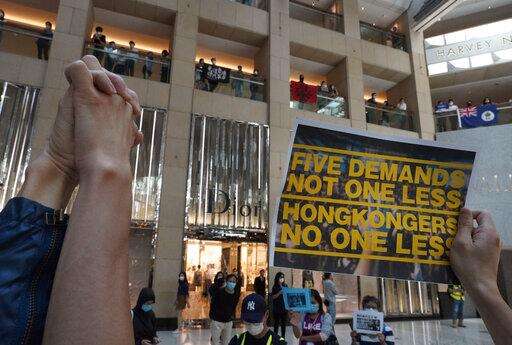 HARVEY N
Dior
FIVE DEMANDS
NOT ONE LESS
HONGKONGERS
NO ONE LESS